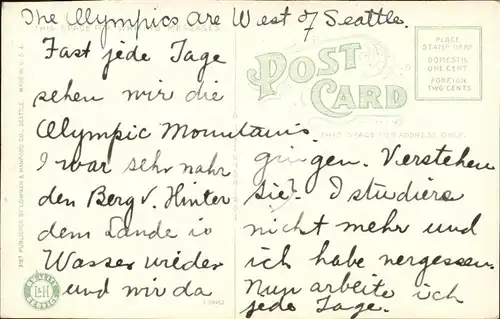 The Olympics are West of Seattle.
THIS SPACE FOR WRITING MESSAGES
Fast jede Tage
sehen wir die
Olympic Mountains.
I war sehr nahr
den Berg v. Hinter
dem Lande is
Wasser wieder
und wir da
gingen. Verstehen
sie? I studiere
nicht mehr und
ich habe vergessen.
Nun arbeite ich
jede Tage.
POST CARD
THIS SPACE FOR ADDRESS ONLY.
PLACE
STAMP HERE
DOMESTIC
ONE CENT
FOREIGN
TWO CENTS
PUBLISHED BY LOWMAN & HANFORD CO., SEATTLE. MADE IN U.S.A.
L&H